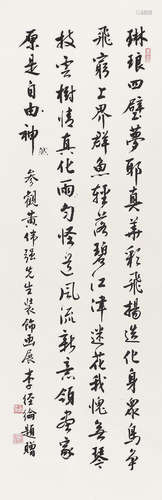 琳琅四壁夢耶真美彩飛揚造化身眾鳥爭
飛窮上界群魚輕落碧江津迷花我愧無琴
枝雲樹情真化雨勻怪道風流新意領畫家
原是自由神
參觀黃偉強先生裝飾畫展李經綸題贈